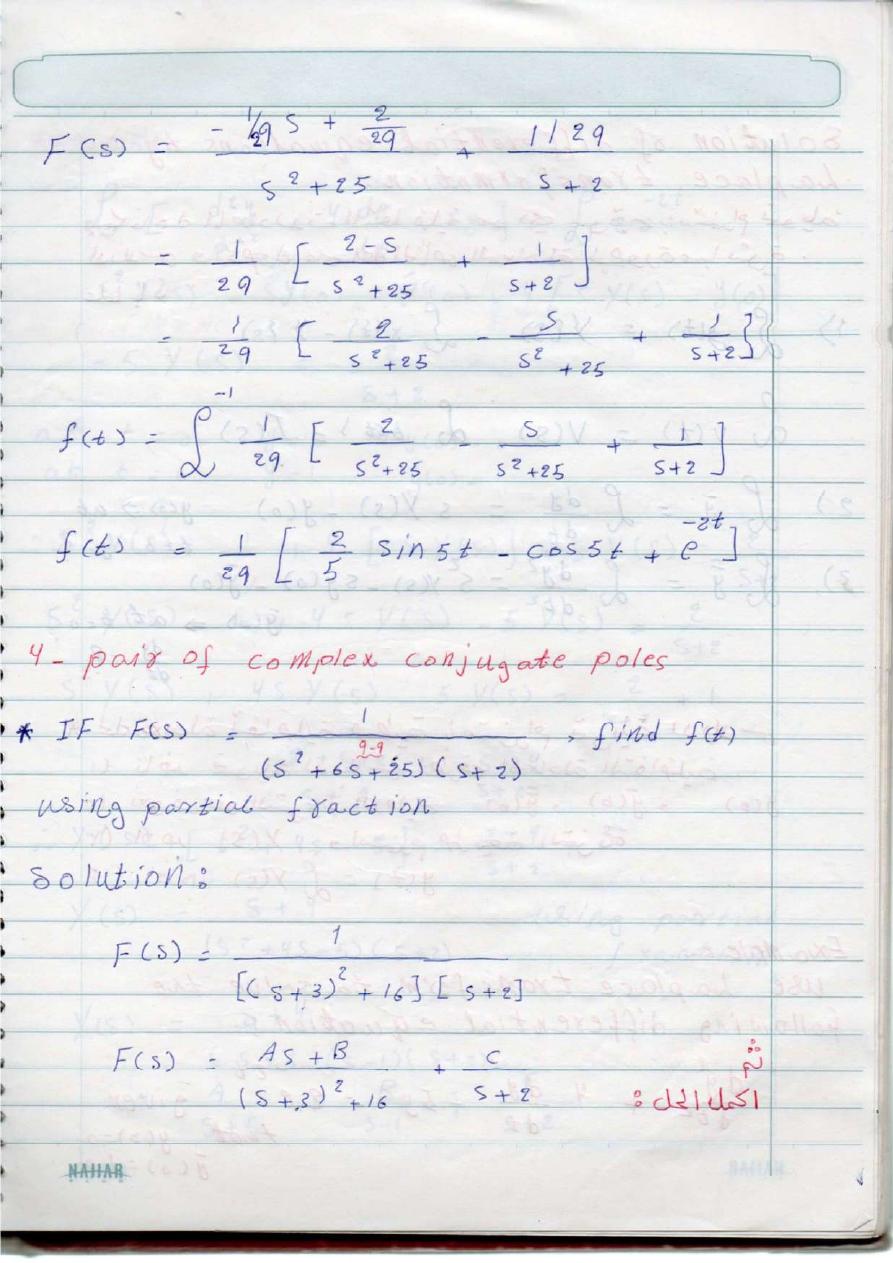 F(s) = (-1/29 s + 2/29)/(s² + 25) + (1/29)/(s + 2)
= 1/29 [ (2-s)/(s² + 25) + 1/(s+2) ]
= 1/29 [ 2/(s² + 25) - s/(s² + 25) + 1/(s+2) ]
f(t) = ℒ⁻¹ 1/29 [ 2/(s² + 25) - s/(s² + 25) + 1/(s+2) ]
f(t) = 1/29 [ 2/5 sin 5t - cos 5t + e^(-2t) ]
4 - pair of complex conjugate poles
* IF F(s) = 1/((s² + 6s + 25)(s + 2)) , find f(t)
9-9
using partial fraction
Solution :
F(s) = 1/([(s+3)² + 16][s+2])
F(s) = (As + B)/((s+3)² + 16) + C/(s+2)
ثم
اكمل الحل :
NAJJAR